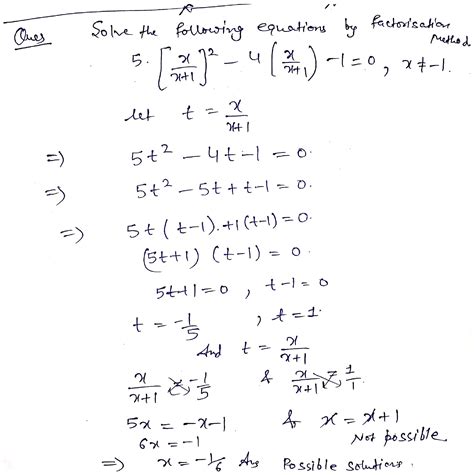 Ques Solve the following equations by factorisation Method
5. [x/x+1]² - 4 (x/x+1) - 1 = 0, x ≠ -1.
let t = x/x+1
⇒) 5t² - 4t - 1 = 0.
⇒) 5t² - 5t + t - 1 = 0.
⇒) 5t (t-1). +1 (t-1) = 0.
(5t+1) (t-1) = 0.
5t+1 = 0, t-1 = 0
t = -1/5, t = 1.
And t = x/x+1
x/x+1 = -1/5 & x/x+1 = 1/1
5x = -x-1 & x = x+1
6x = -1 Not possible
⇒) x = -1/6 Ans Possible solutions.